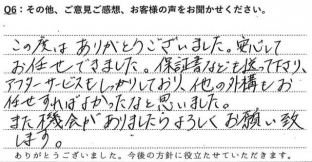 Q6：その他、ご意見ご感想、お客様の声をお聞かせください。
この度は ありがとうございました。安心して
お任せできました。保証書なども送って下さり、
アフターサービスもしっかりしており、他の外構もお
任せすればよかったなと思いました。
また機会がありましたらよろしくお願い致
します。
ありがとうございました。今後の方針に役立たせていただきます。